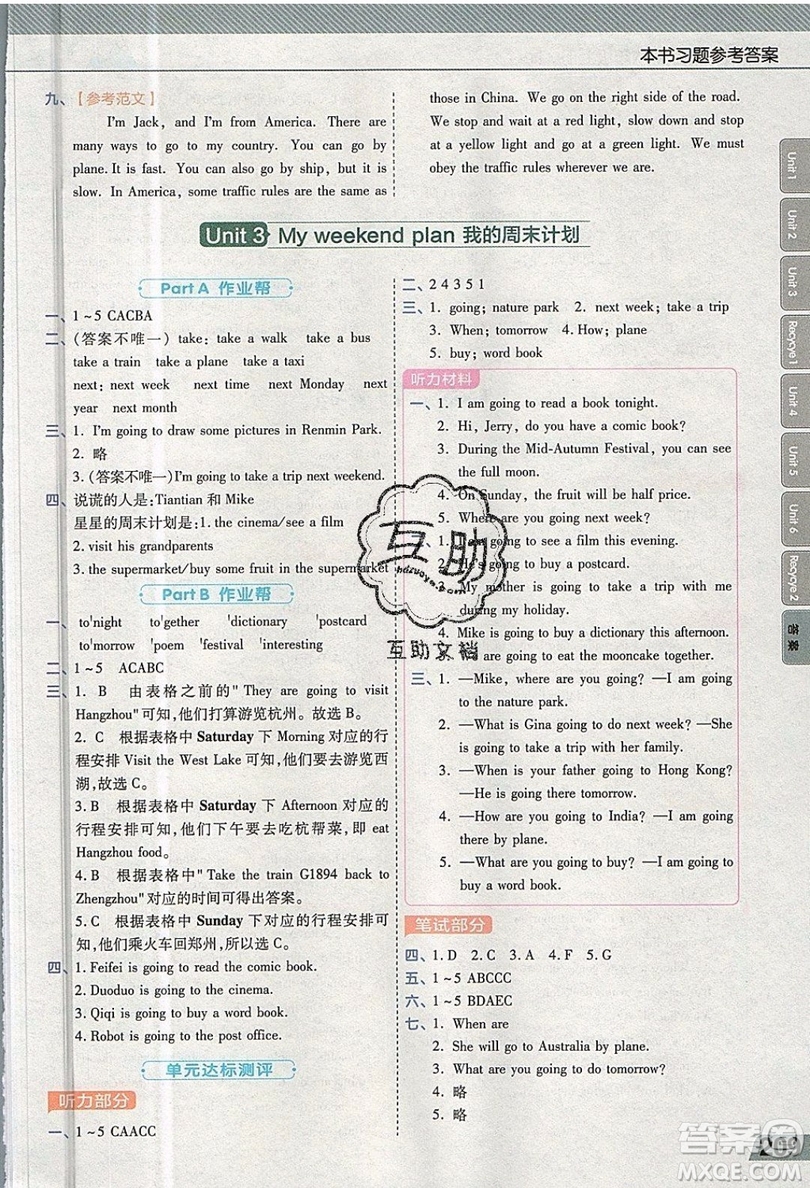 本书习题参考答案
九、【参考范文】
I'm Jack, and I'm from America. There are
many ways to go to my country. You can go by
plane. It is fast. You can also go by ship, but it is
slow. In America, some traffic rules are the same as
those in China. We go on the right side of the road.
We stop and wait at a red light, slow down and stop
at a yellow light and go at a green light. We must
obey the traffic rules wherever we are.
Unit 3 My weekend plan 我的周末计划
Part A 作业帮
一、1~5 CACBA
二、(答案不唯一) take: take a walk take a bus
take a train take a plane take a taxi
next: next week next time next Monday next
year next month
三、1. I'm going to draw some pictures in Renmin Park.
2. 略
3. (答案不唯一)I'm going to take a trip next weekend.
四、说谎的人是:Tiantian 和 Mike
星星的周末计划是:1. the cinema/see a film
2. visit his grandparents
3. the supermarket/buy some fruit in the supermarket
Part B 作业帮
一、to'night to'gether 'dictionary 'postcard
to'morrow 'poem 'festival 'interesting
二、1~5 ACABC
三、1. B 由表格之前的" They are going to visit
Hangzhou"可知,他们打算游览杭州。故选B。
2. C 根据表格中 Saturday 下 Morning 对应的行
程安排 Visit the West Lake 可知,他们要去游览西
湖,故选C。
3. B 根据表格中 Saturday 下 Afternoon 对应的
行程安排可知,他们下午要去吃杭帮菜,即 eat
Hangzhou food。
4. B 根据表格中" Take the train G1894 back to
Zhengzhou"对应的时间可得出答案。
5. C 根据表格中 Sunday 下对应的行程安排可
知,他们乘火车回郑州,所以选C。
四、1. Feifei is going to read the comic book.
2. Duoduo is going to the cinema.
3. Qiqi is going to buy a postcard.
4. Robot is going to the post office.
单元达标测评
听力部分
一、1~5 CAACC
二、2 4 3 5 1
三、1. going; nature park 2. next week; take a trip
3. When; tomorrow 4. How; plane
5. buy; word book
听力材料
一、1. I am going to read a book tonight.
2. Hi, Jerry, do you have a comic book?
3. During the Mid-Autumn Festival, you can see
the full moon.
4. On Sunday, the fruit will be half price.
5. Where are you going next week?
1. I am going to see a film this evening.
2. He is going to buy a postcard.
3. My mother is going to take a trip with me
during my holiday.
4. Mike is going to buy a dictionary this afternoon.
5. We are going to eat the mooncake together.
三、1. —Mike, where are you going? —I am going
to the nature park.
2. —What is Gina going to do next week? —She
is going to take a trip with her family.
3. —When is your father going to Hong Kong?
—He is going there tomorrow.
4. —How are you going to India? —I am going
there by plane.
5. —What are you going to buy? —I am going to
buy a word book.
笔试部分
四、1. D 2. C 3. A 4. F 5. G
五、1~5 ABCCC
六、1~5 BDAEC
七、1. When are
2. She will go to Australia by plane.
3. What are you going to do tomorrow?
4. 略
5. 略
Unit 1
Unit 2
Unit 3
Recycye 1
Unit 4
Unit 5
Unit 6
Recycye 2
答案
互助
互助文档
MXQE.COM